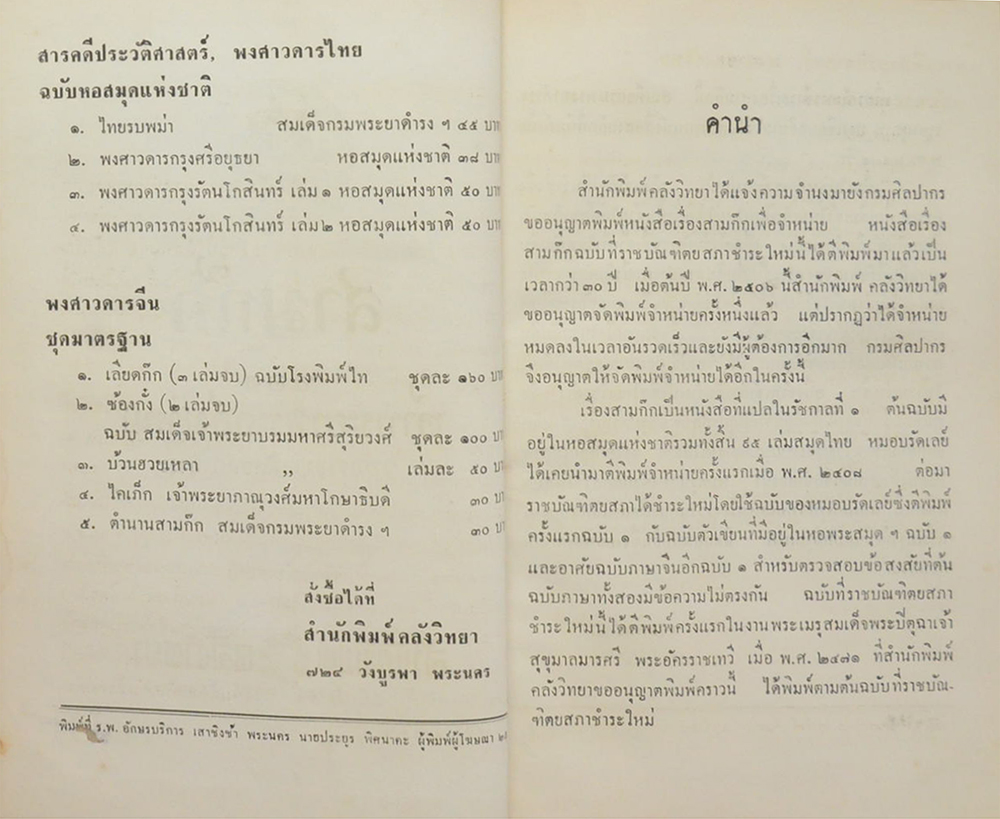 สารคดีประวัติศาสตร์, พงศาวดารไทย
ฉบับหอสมุดแห่งชาติ
๑. ไทยรบพม่า สมเด็จกรมพระยาดำรง ฯ ๔๕ บาท
๒. พงศาวดารกรุงศรีอยุธยา หอสมุดแห่งชาติ ๓๘ บาท
๓. พงศาวดารกรุงรัตนโกสินทร์ เล่ม ๑ หอสมุดแห่งชาติ ๕๐ บาท
๔. พงศาวดารกรุงรัตนโกสินทร์ เล่ม ๒ หอสมุดแห่งชาติ ๕๐ บาท
พงศาวดารจีน
ชุดมาตรฐาน
๑. เลียดก๊ก (๓ เล่มจบ) ฉบับโรงพิมพ์ไท ชุดละ ๑๖๐ บาท
๒. ซ้องกั๋ง (๒ เล่มจบ)
ฉบับ สมเด็จเจ้าพระยาบรมมหาศรีสุริยวงศ์ ชุดละ ๑๐๐ บาท
๓. บ้วนฮวยเหลา ,, เล่มละ ๕๐ บาท
๔. ไคเภ็ก เจ้าพระยาภาณุวงศ์มหาโกษาธิบดี ๓๐ บาท
๕. ตำนานสามก๊ก สมเด็จกรมพระยาดำรง ฯ ๓๐ บาท
สั่งซื้อได้ที่
สำนักพิมพ์คลังวิทยา
๗๒๔ วังบูรพา พระนคร
พิมพ์ที่ ร.พ. อักษรบริการ เสาชิงช้า พระนคร นายประยูร พิศนาคะ ผู้พิมพ์ผู้โฆษณา
คำนำ
สำนักพิมพ์คลังวิทยาได้แจ้งความจำนงมายังกรมศิลปากร
ขออนุญาตพิมพ์หนังสือเรื่องสามก๊กเพื่อจำหน่าย หนังสือเรื่อง
สามก๊กฉบับที่ราชบัณฑิตยสภาชำระใหม่นี้ได้ตีพิมพ์มาแล้วเป็น
เวลากว่า ๓๐ ปี เมื่อต้นปี พ.ศ. ๒๕๐๖ นี้สำนักพิมพ์ คลังวิทยาได้
ขออนุญาตจัดพิมพ์จำหน่ายครั้งหนึ่งแล้ว แต่ปรากฏว่าได้จำหน่าย
หมดลงในเวลาอันรวดเร็วและยังมีผู้ต้องการอีกมาก กรมศิลปากร
จึงอนุญาตให้จัดพิมพ์จำหน่ายได้อีกในครั้งนี้
เรื่องสามก๊กเป็นหนังสือที่แปลในรัชกาลที่ ๑ ต้นฉบับมี
อยู่ในหอสมุดแห่งชาติรวมทั้งสิ้น ๙๕ เล่มสมุดไทย หมอบรัดเลย์
ได้เคยนำมาตีพิมพ์จำหน่ายครั้งแรกเมื่อ พ.ศ. ๒๔๐๘ ต่อมา
ราชบัณฑิตยสภาได้ชำระใหม่โดยใช้ฉบับของหมอบรัดเลย์ซึ่งตีพิมพ์
ครั้งแรกฉบับ ๑ กับฉบับตัวเขียนที่มีอยู่ในหอพระสมุด ฯ ฉบับ ๑
และอาศัยฉบับภาษาจีนอีกฉบับ ๑ สำหรับตรวจสอบข้อสงสัยที่ต้น
ฉบับภาษาทั้งสองมีข้อความไม่ตรงกัน ฉบับที่ราชบัณฑิตยสภา
ชำระใหม่นี้ได้ตีพิมพ์ครั้งแรกในงานพระเมรุสมเด็จพระปิตุฉาเจ้า
สุขุมาลมารศรี พระอัครราชเทวี เมื่อ พ.ศ. ๒๔๗๑ ที่สำนักพิมพ์
คลังวิทยาขออนุญาตพิมพ์คราวนี้ ได้พิมพ์ตามต้นฉบับที่ราชบัณ-
ฑิตยสภาชำระใหม่